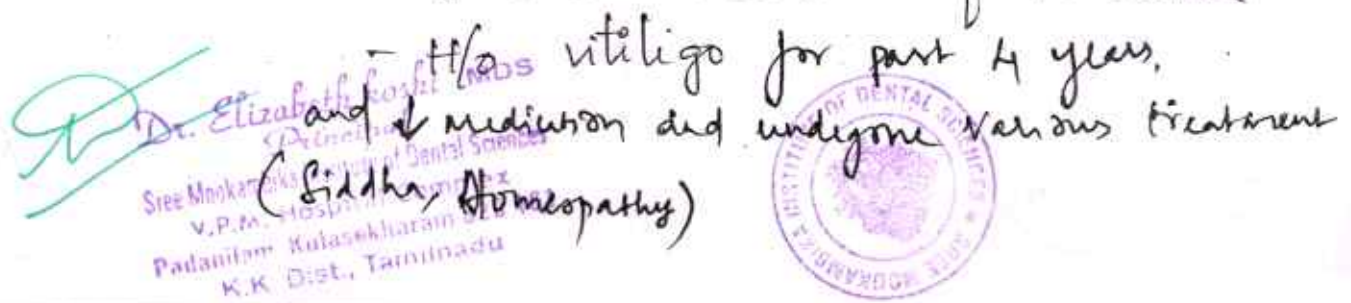 - H/o vitiligo for past 4 years,
and ↓ medication and undergone various treatment
(Siddha, Homeopathy)
Dr. Elizabeth Koshi MDS
Principal
Sree Mookambika Institute of Dental Sciences
V.P.M. Hospital Complex
Padanilam Kulasekharam
K.K Dist., Tamilnadu
INSTITUTE OF DENTAL SCIENCES * SREE MOOKAMBIKA